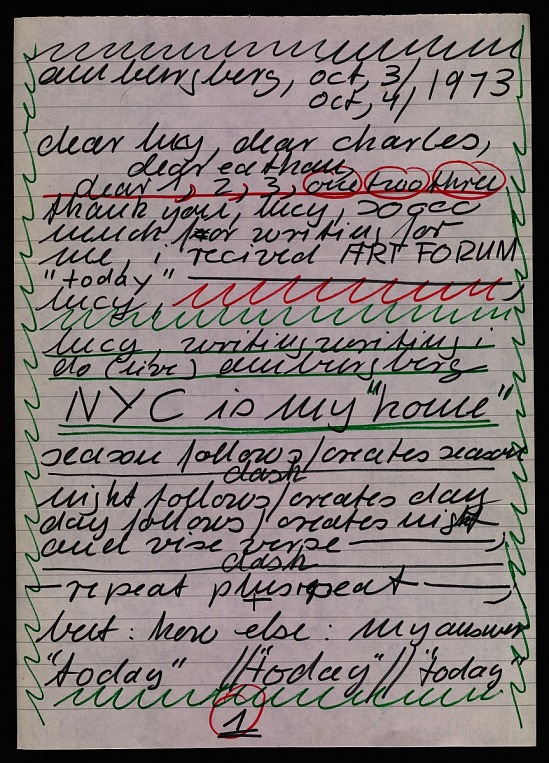 am burgberg, oct, 3/
oct, 4, / 1973
dear lucy, dear charles,
dear eathan,
dear 1, 2, 3, one two three
thank you, lucy, so
much for writing for
me, i recived ART FORUM
"today"
lucy,
lucy, writing writing i
do (live) am burgberg
NYC is my "home"
season follows/creates season
dash
night follows/creates day
day follows/creates night
and vise verse
dash
repeat plus repeat
+
but: how else: my answer
"today" // "today" // "today"
1